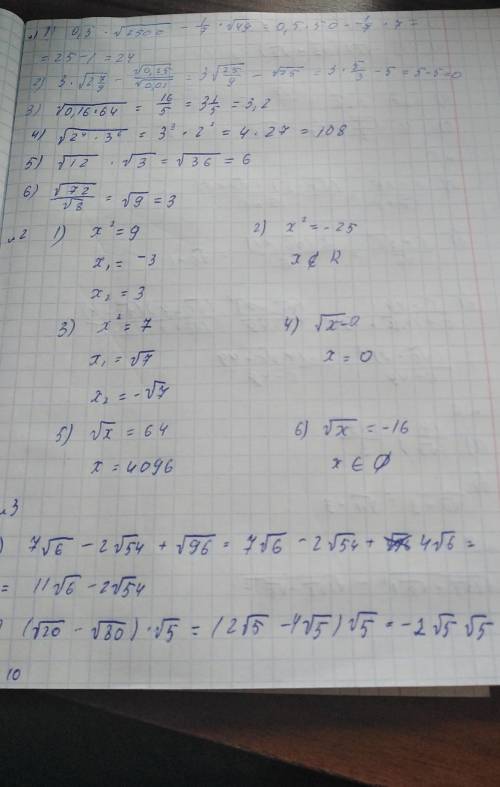 1) 0,5 · √2500 - 1/7 · √49 = 0,5 · 50 - 1/7 · 7 =
= 25 - 1 = 24
2) 3 · √2 7/9 - √0,25/√0,01 = 3√25/9 - √25 = 3 · 5/3 - 5 = 5-5=0
3) √0,16 · 64 = 16/5 = 3 1/5 = 3,2
4) √2⁴ · 3⁶ = 3³ · 2² = 4 · 27 = 108
5) √12 · √3 = √36 = 6
6) √72/√8 = √9 = 3
№2 1) x² = 9 2) x² = -25
x₁ = -3 x ∉ R
x₂ = 3
3) x² = 7 4) √x = 0
x₁ = √7 x = 0
x₂ = -√7
5) √x = 64 6) √x = -16
x = 4096 x ∈ ∅
№3
) 7√6 - 2√54 + √96 = 7√6 - 2√54 + 4√6 =
= 11√6 - 2√54
) (√20 - √80) · √5 = (2√5 - 4√5) √5 = -2√5 √5
10